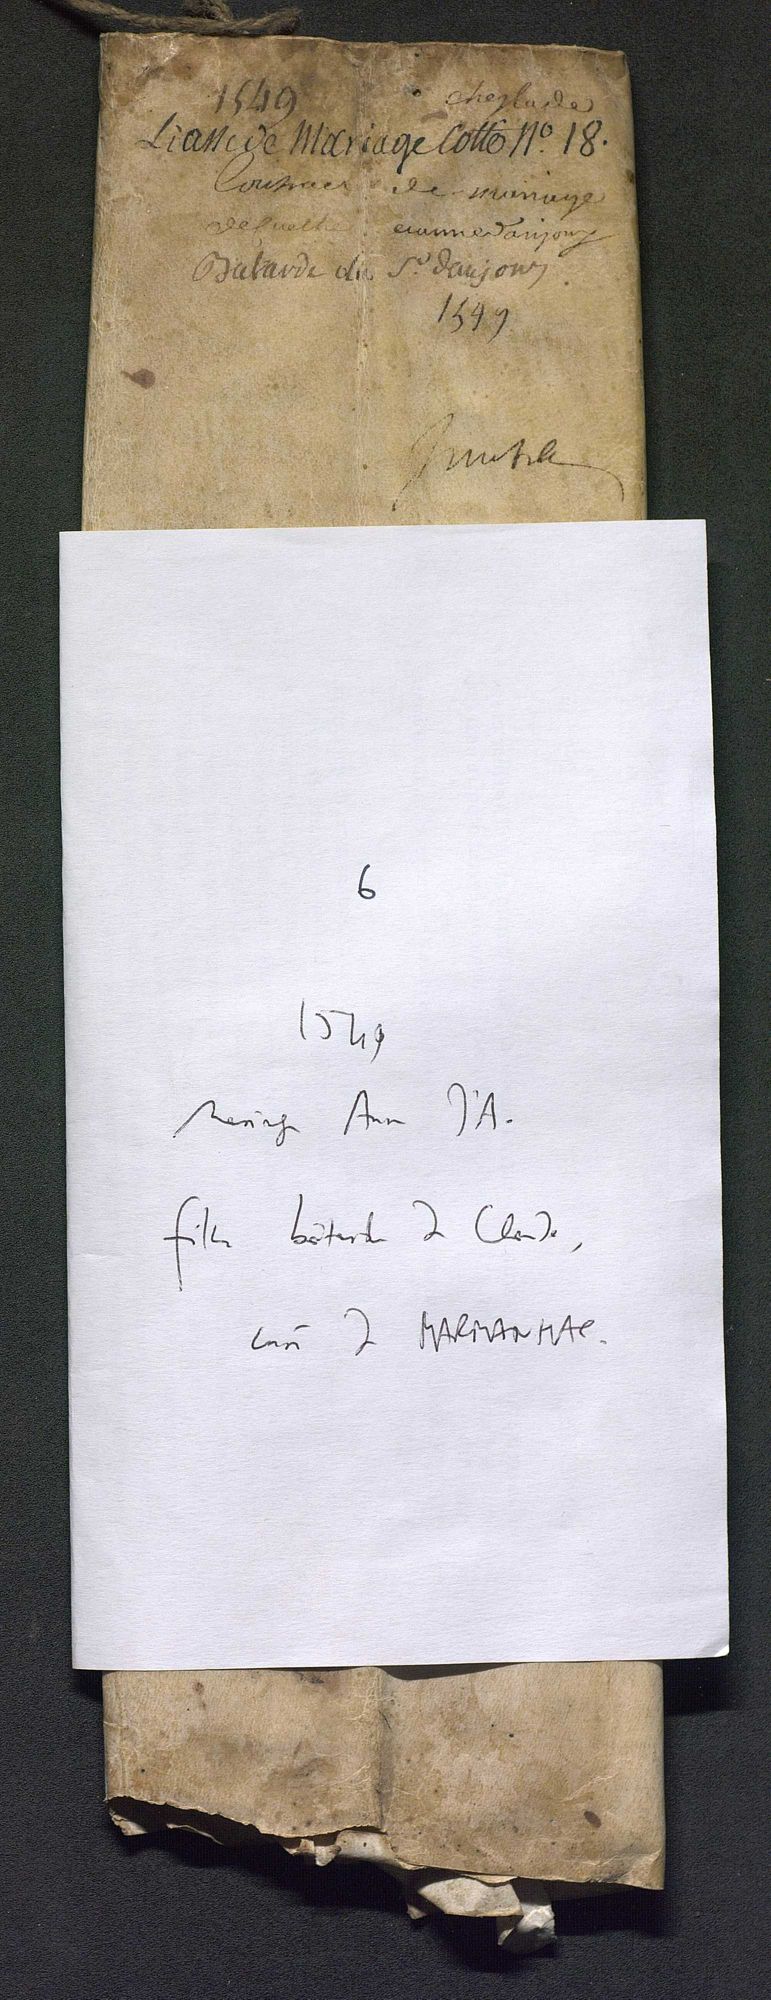 1549 cheylade
Liasse de Mariage Cotte N° 18.
Contract de mariage
de anne danjouy
Batarde du Sr danjouy
1549
6
1549
mariage Anne d'A.
fille bâtarde de Claude,
curé de MARMANHAC.